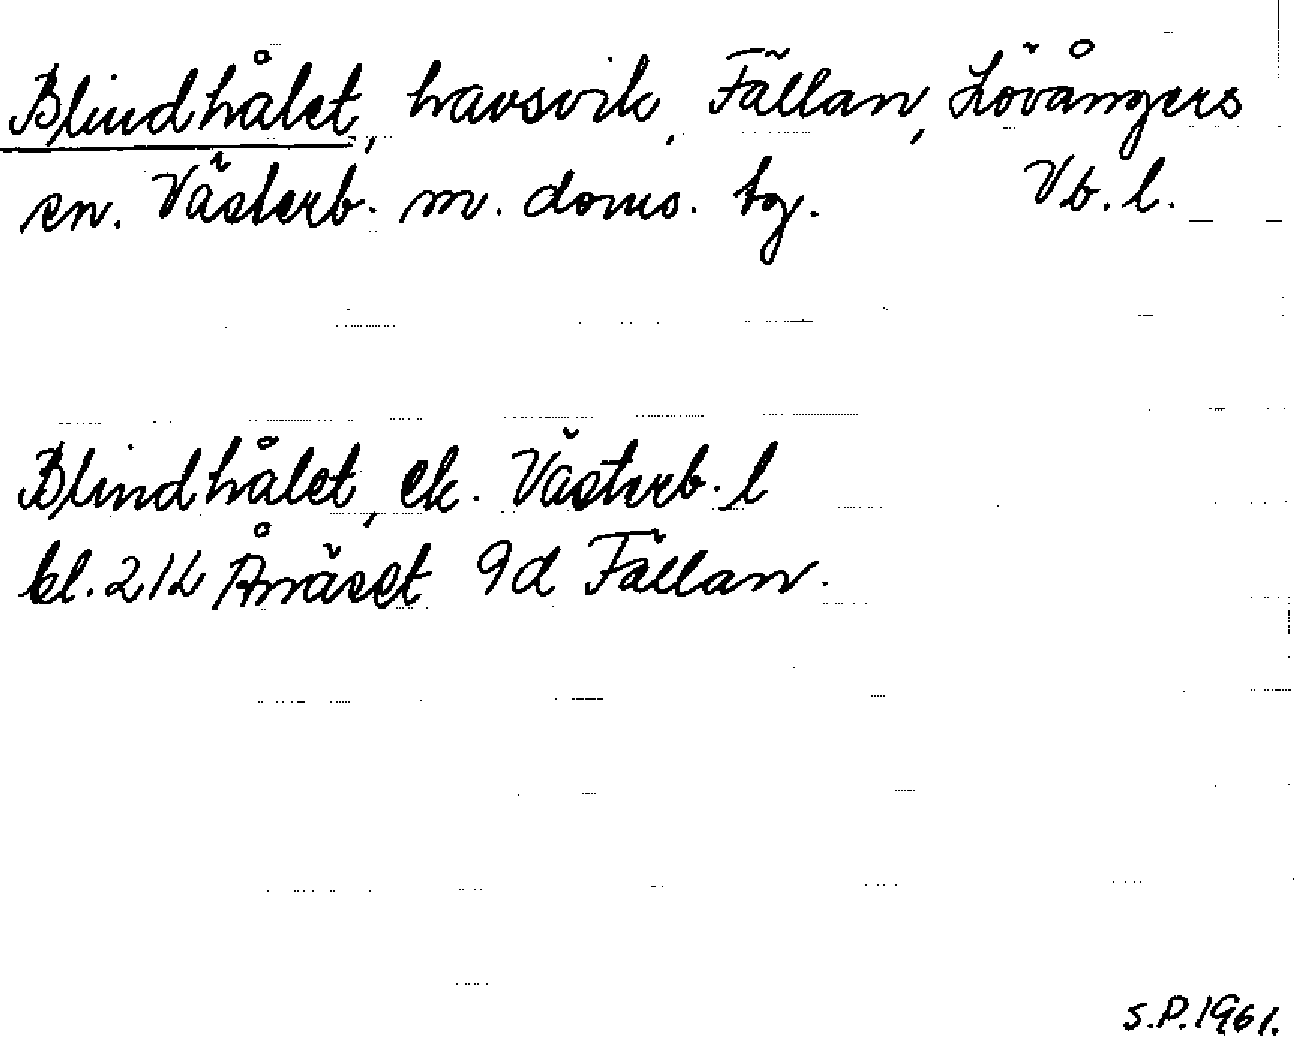 Blindhålet, havsvik, Fällan, Lövångers
sn. Västerb. m. doms. tg. Vb. l.
Blindhålet, ek. Västerb. l
bl. 21L Ånäset 9d Fällan.
S.P. 1961.